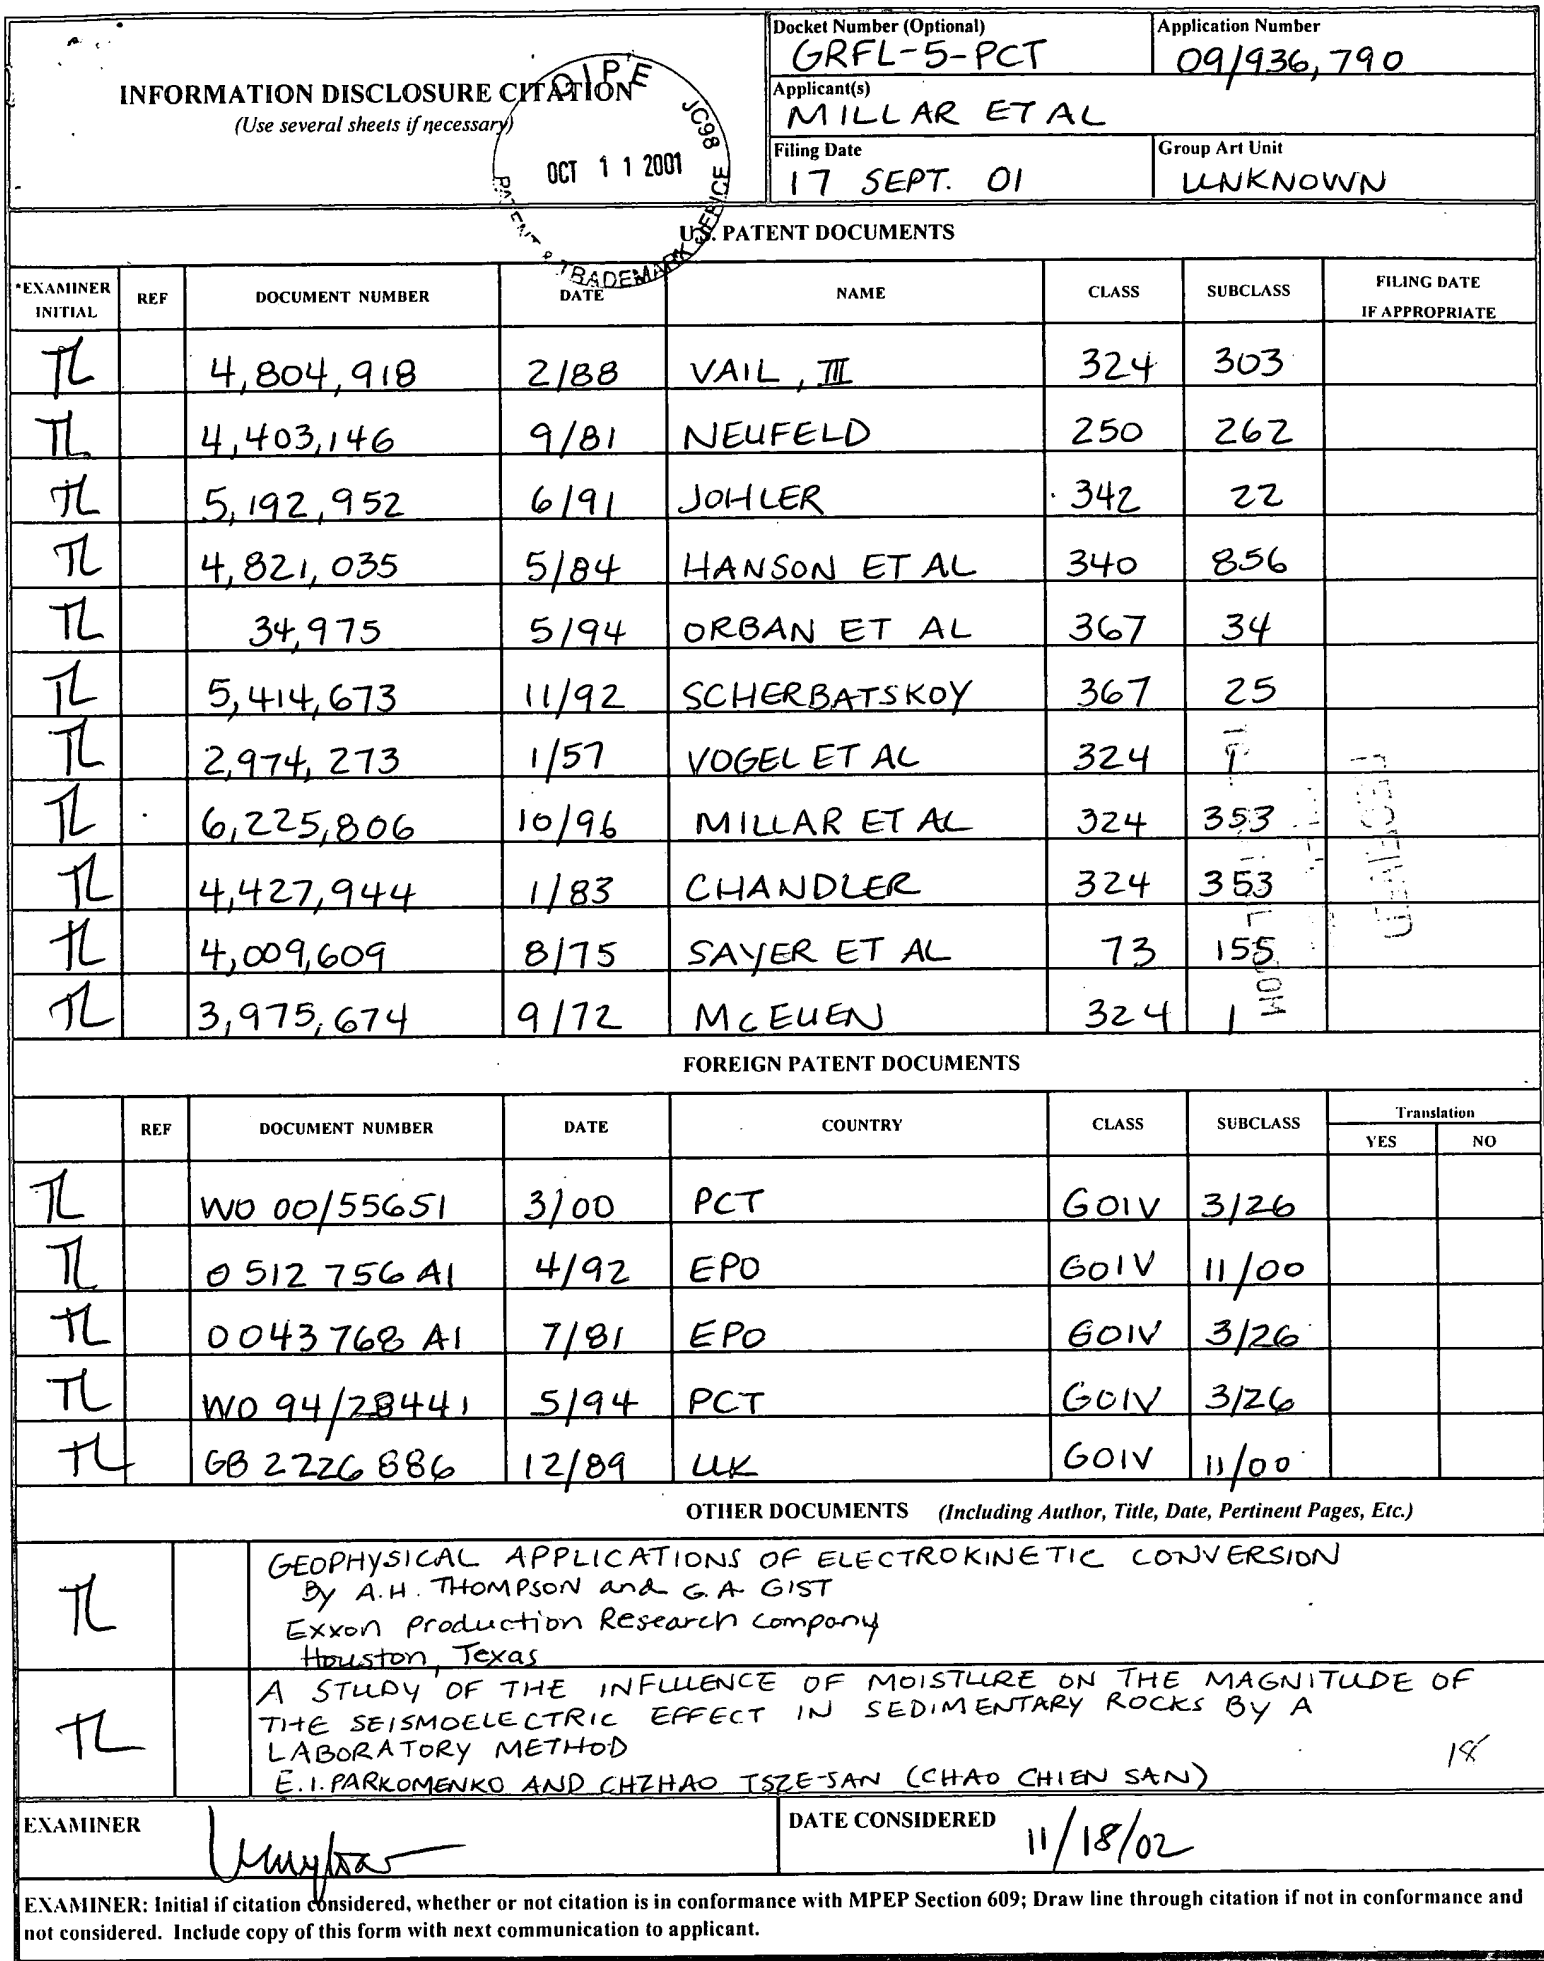 Docket Number (Optional)
GRFL-5-PCT
Application Number
09/936,790
INFORMATION DISCLOSURE CITATION
(Use several sheets if necessary)
Applicant(s)
MILLAR ET AL
Filing Date
17 SEPT. 01
Group Art Unit
UNKNOWN
OIPE JC98
OCT 11 2001
PATENT & TRADEMARK SERVICE
U.S. PATENT DOCUMENTS
*EXAMINER INITIAL REF DOCUMENT NUMBER DATE NAME CLASS SUBCLASS FILING DATE IF APPROPRIATE
TL 4,804,918 2/88 VAIL, III 324 303
TL 4,403,146 9/81 NEUFELD 250 262
TL 5,192,952 6/91 JOHLER 342 22
TL 4,821,035 5/84 HANSON ET AL 340 856
TL 34,975 5/94 ORBAN ET AL 367 34
TL 5,414,673 11/92 SCHERBATSKOY 367 25
TL 2,974,273 1/57 VOGEL ET AL 324 1
TL 6,225,806 10/96 MILLAR ET AL 324 353
TL 4,427,944 1/83 CHANDLER 324 353
TL 4,009,609 8/75 SAYER ET AL 73 155
TL 3,975,674 9/72 McEUEN 324 1
RECEIVED
FOREIGN PATENT DOCUMENTS
REF DOCUMENT NUMBER DATE COUNTRY CLASS SUBCLASS Translation
YES NO
TL WO 00/55651 3/00 PCT G01V 3/26
TL 0 512 756 A1 4/92 EPO G01V 11/00
TL 0043768 A1 7/81 EPO G01V 3/26
TL WO 94/28441 5/94 PCT G01V 3/26
TL GB 2226886 12/89 UK G01V 11/00
OTHER DOCUMENTS (Including Author, Title, Date, Pertinent Pages, Etc.)
TL GEOPHYSICAL APPLICATIONS OF ELECTROKINETIC CONVERSION
By A.H. THOMPSON and G.A. GIST
Exxon Production Research Company
Houston, Texas
TL A STUDY OF THE INFLUENCE OF MOISTURE ON THE MAGNITUDE OF
THE SEISMOELECTRIC EFFECT IN SEDIMENTARY ROCKS BY A
LABORATORY METHOD
E.I. PARKOMENKO AND CHZHAO TSZE-SAN (CHAO CHIEN SAN)
18
EXAMINER
DATE CONSIDERED 11/18/02
EXAMINER: Initial if citation considered, whether or not citation is in conformance with MPEP Section 609; Draw line through citation if not in conformance and
not considered. Include copy of this form with next communication to applicant.